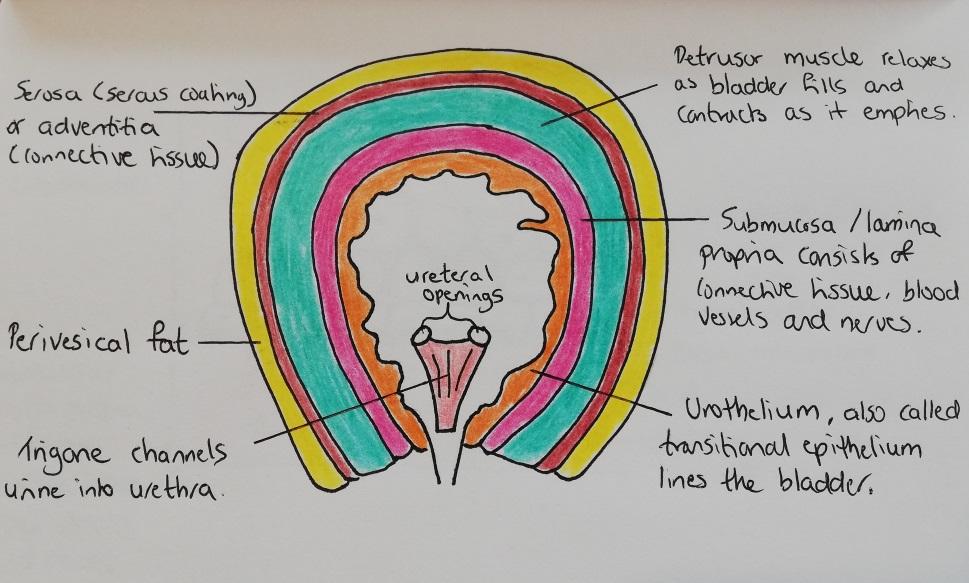 Serosa (serous coating)
or adventitia
(connective tissue)
Perivesical fat
Trigone channels
urine into urethra.
ureteral
openings
Detrusor muscle relaxes
as bladder fills and
contracts as it empties.
Submucosa / lamina
propria consists of
connective tissue, blood
vessels and nerves.
Urothelium, also called
transitional epithelium
lines the bladder.